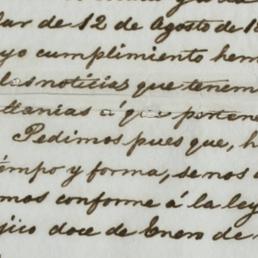 lar de 12 de Agosto de 18
yo cumplimiento hem
las noticias que tenem
ttanias á que pertene
Pedimos pues que, h
empo y forma, se nos a
mos conforme á la ley
jico doce de Enero de